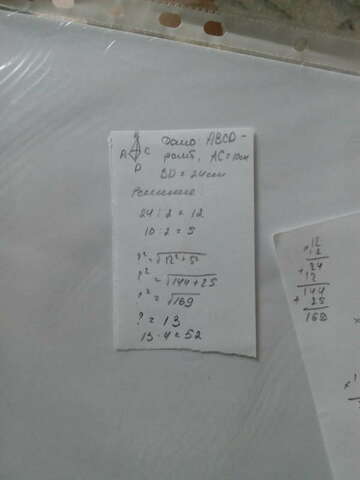 B
A C
D
Дано: ABCD -
ромб, AC = 10см
BD = 24см
Решение:
24 : 2 = 12
10 : 2 = 5
?² = √12² + 5²
?² = √144 + 25
?² = √169
? = 13
13 · 4 = 52
12
12
24
+ 12
144
+ 25
169